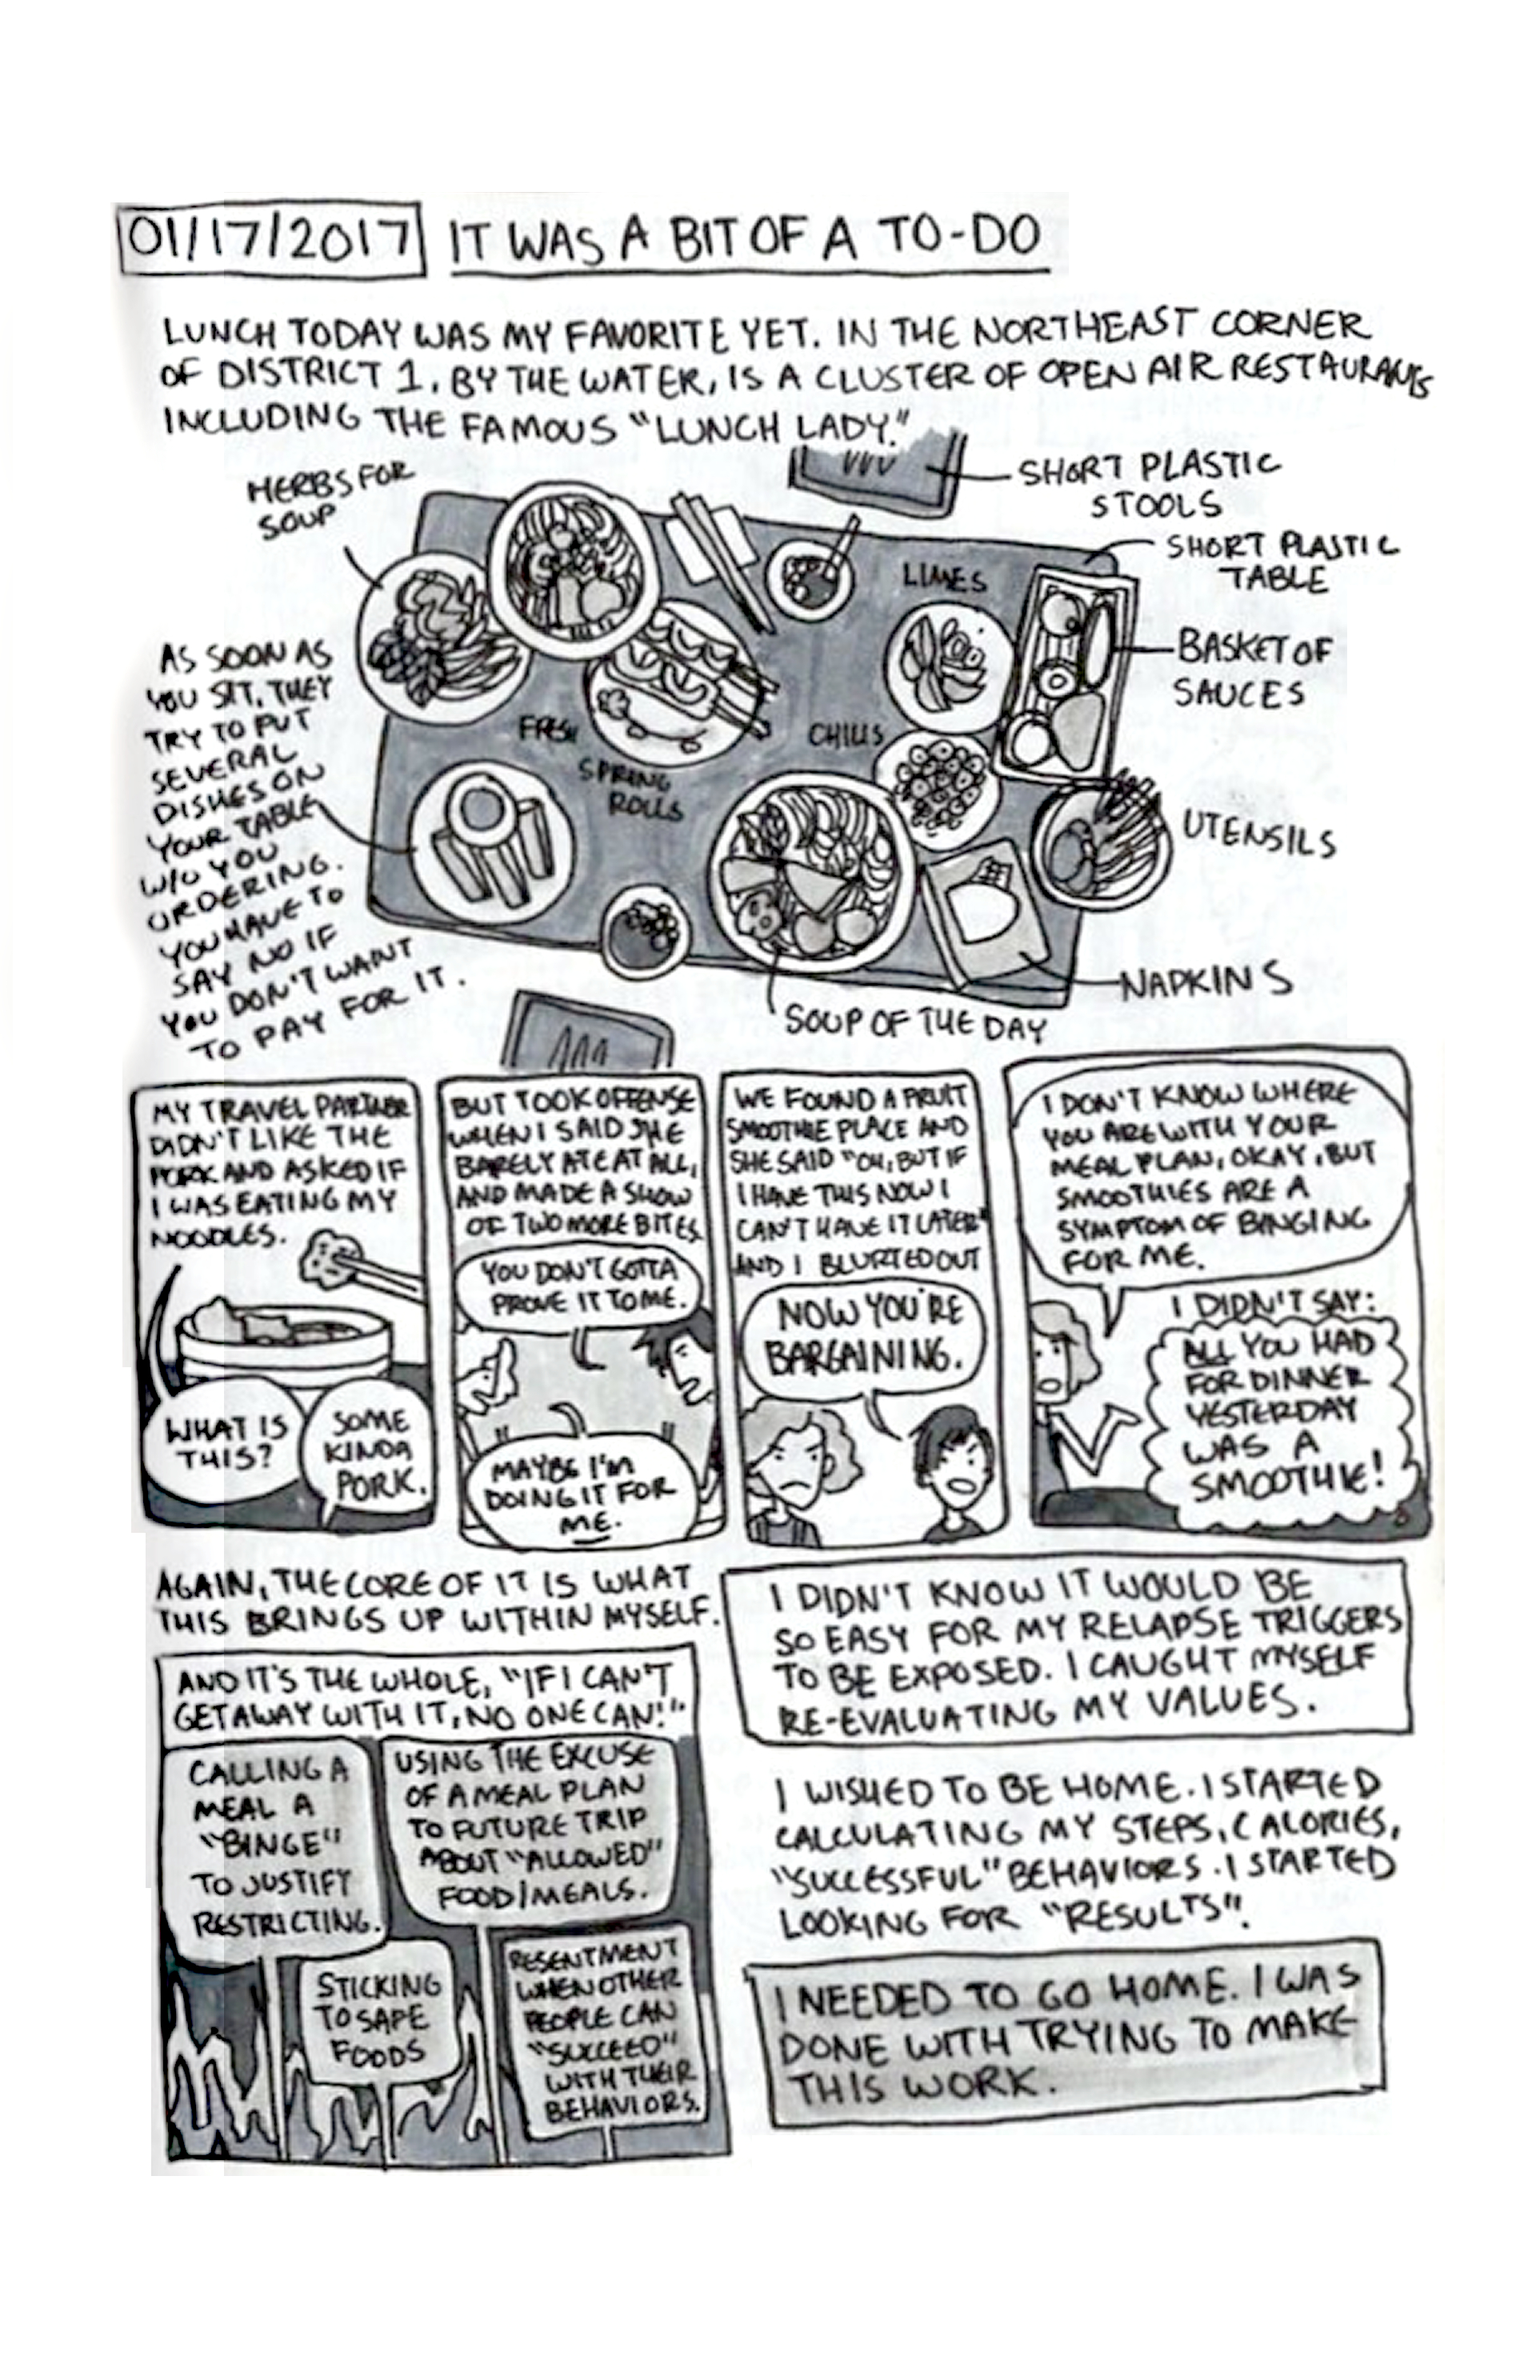 01/17/2017 IT WAS A BIT OF A TO-DO
LUNCH TODAY WAS MY FAVORITE YET. IN THE NORTHEAST CORNER
OF DISTRICT 1, BY THE WATER, IS A CLUSTER OF OPEN AIR RESTAURANTS
INCLUDING THE FAMOUS "LUNCH LADY."
HERBS FOR
SOUP
SHORT PLASTIC
STOOLS
SHORT PLASTIC
TABLE
LIMES
BASKET OF
SAUCES
AS SOON AS
YOU SIT, THEY
TRY TO PUT
SEVERAL
DISHES ON
YOUR TABLE
W/O YOU
ORDERING.
YOU HAVE TO
SAY NO IF
YOU DON'T WANT
TO PAY FOR IT.
FRESH
SPRING
ROLLS
CHILIS
UTENSILS
NAPKINS
SOUP OF THE DAY
MY TRAVEL PARTNER
DIDN'T LIKE THE
PORK AND ASKED IF
I WAS EATING MY
NOODLES.
WHAT IS
THIS?
SOME
KINDA
PORK.
BUT TOOK OFFENSE
WHEN I SAID SHE
BARELY ATE AT ALL,
AND MADE A SHOW
OF TWO MORE BITES.
YOU DON'T GOTTA
PROVE IT TO ME.
MAYBE I'M
DOING IT FOR
ME.
WE FOUND A FRUIT
SMOOTHIE PLACE AND
SHE SAID "OH, BUT IF
I HAVE THIS NOW I
CAN'T HAVE IT LATER"
AND I BLURTED OUT
NOW YOU'RE
BARGAINING.
I DON'T KNOW WHERE
YOU ARE WITH YOUR
MEAL PLAN, OKAY, BUT
SMOOTHIES ARE A
SYMPTOM OF BINGING
FOR ME.
I DIDN'T SAY:
ALL YOU HAD
FOR DINNER
YESTERDAY
WAS A
SMOOTHIE!
AGAIN, THE CORE OF IT IS WHAT
THIS BRINGS UP WITHIN MYSELF.
AND IT'S THE WHOLE, "IF I CAN'T
GET AWAY WITH IT, NO ONE CAN!"
CALLING A
MEAL A
"BINGE"
TO JUSTIFY
RESTRICTING.
USING THE EXCUSE
OF A MEAL PLAN
TO FUTURE TRIP
ABOUT "ALLOWED"
FOOD/MEALS.
STICKING
TO SAFE
FOODS
RESENTMENT
WHEN OTHER
PEOPLE CAN
"SUCCEED"
WITH THEIR
BEHAVIORS.
I DIDN'T KNOW IT WOULD BE
SO EASY FOR MY RELAPSE TRIGGERS
TO BE EXPOSED. I CAUGHT MYSELF
RE-EVALUATING MY VALUES.
I WISHED TO BE HOME. I STARTED
CALCULATING MY STEPS, CALORIES,
"SUCCESSFUL" BEHAVIORS. I STARTED
LOOKING FOR "RESULTS".
I NEEDED TO GO HOME. I WAS
DONE WITH TRYING TO MAKE
THIS WORK.